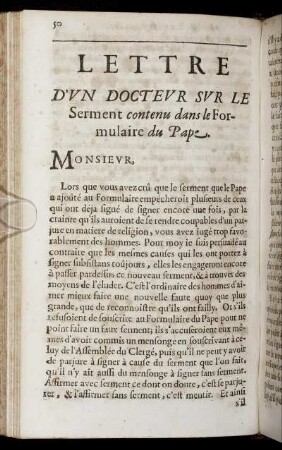 50
LETTRE
D'VN DOCTEVR SVR LE
Serment contenu dans le For-
mulaire du Pape.
MONSIEVR,
Lors que vous avez crû que le serment que le Pape
a ajoûté au Formulaire empêcheroit plusieurs de ceux
qui ont déja signé de signer encore une fois, par la
crainte qu'ils auroient de se rendre coupables d'un par-
jure en matiere de religion, vous avez jugé trop favo-
rablement des hommes. Pour moy je suis persuadé au
contraire que les mesmes causes qui les ont portez à
signer subsistans toûjours, elles les engageront encore
à passer pardessus ce nouveau serment, & à trouver des
moyens de l'éluder. C'est l'ordinaire des hommes d'ai-
mer mieux faire une nouvelle faute quoy que plus
grande, que de reconnoistre qu'ils ont failly. Or s'ils
refusoient de souscrire au Formulaire du Pape pour ne
point faire un faux serment; ils s'accuseroient eux mê-
mes d'avoir commis un mensonge en souscrivant à ce-
luy de l'Assemblée du Clergé, puis qu'il ne peut y avoir
de parjure à signer à cause du serment que l'on fait,
qu'il n'y ait aussi du mensonge à signer sans serment.
Affirmer avec serment ce dont on doute, c'est se parju-
rer, & l'affirmer sans serment, c'est mentir. Et ainsi
s'il